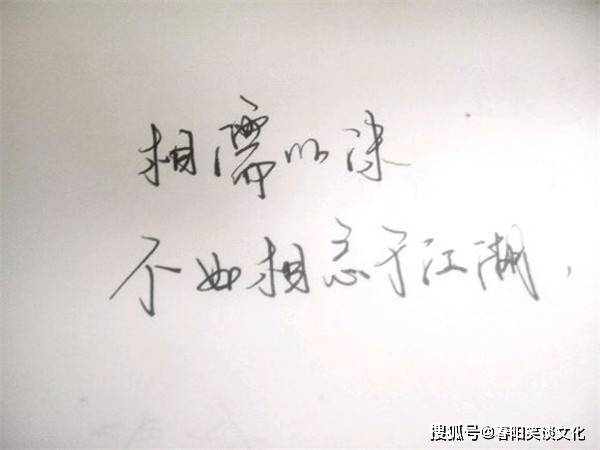 相濡以沫
不如相忘于江湖，
搜狐号@春阳笑谈文化